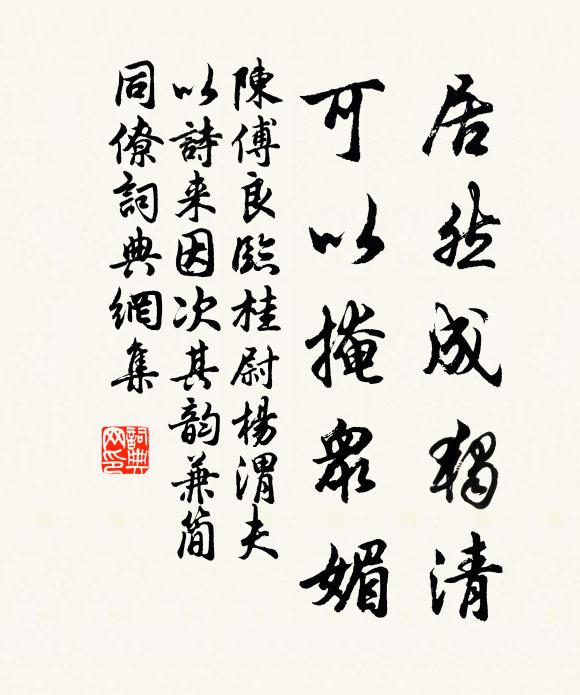 居然成獨清
可以掩衆媚
陳傅良臨桂尉楊渭夫
以詩来因次其韵兼简
同僚詞典網集
詞典
网印